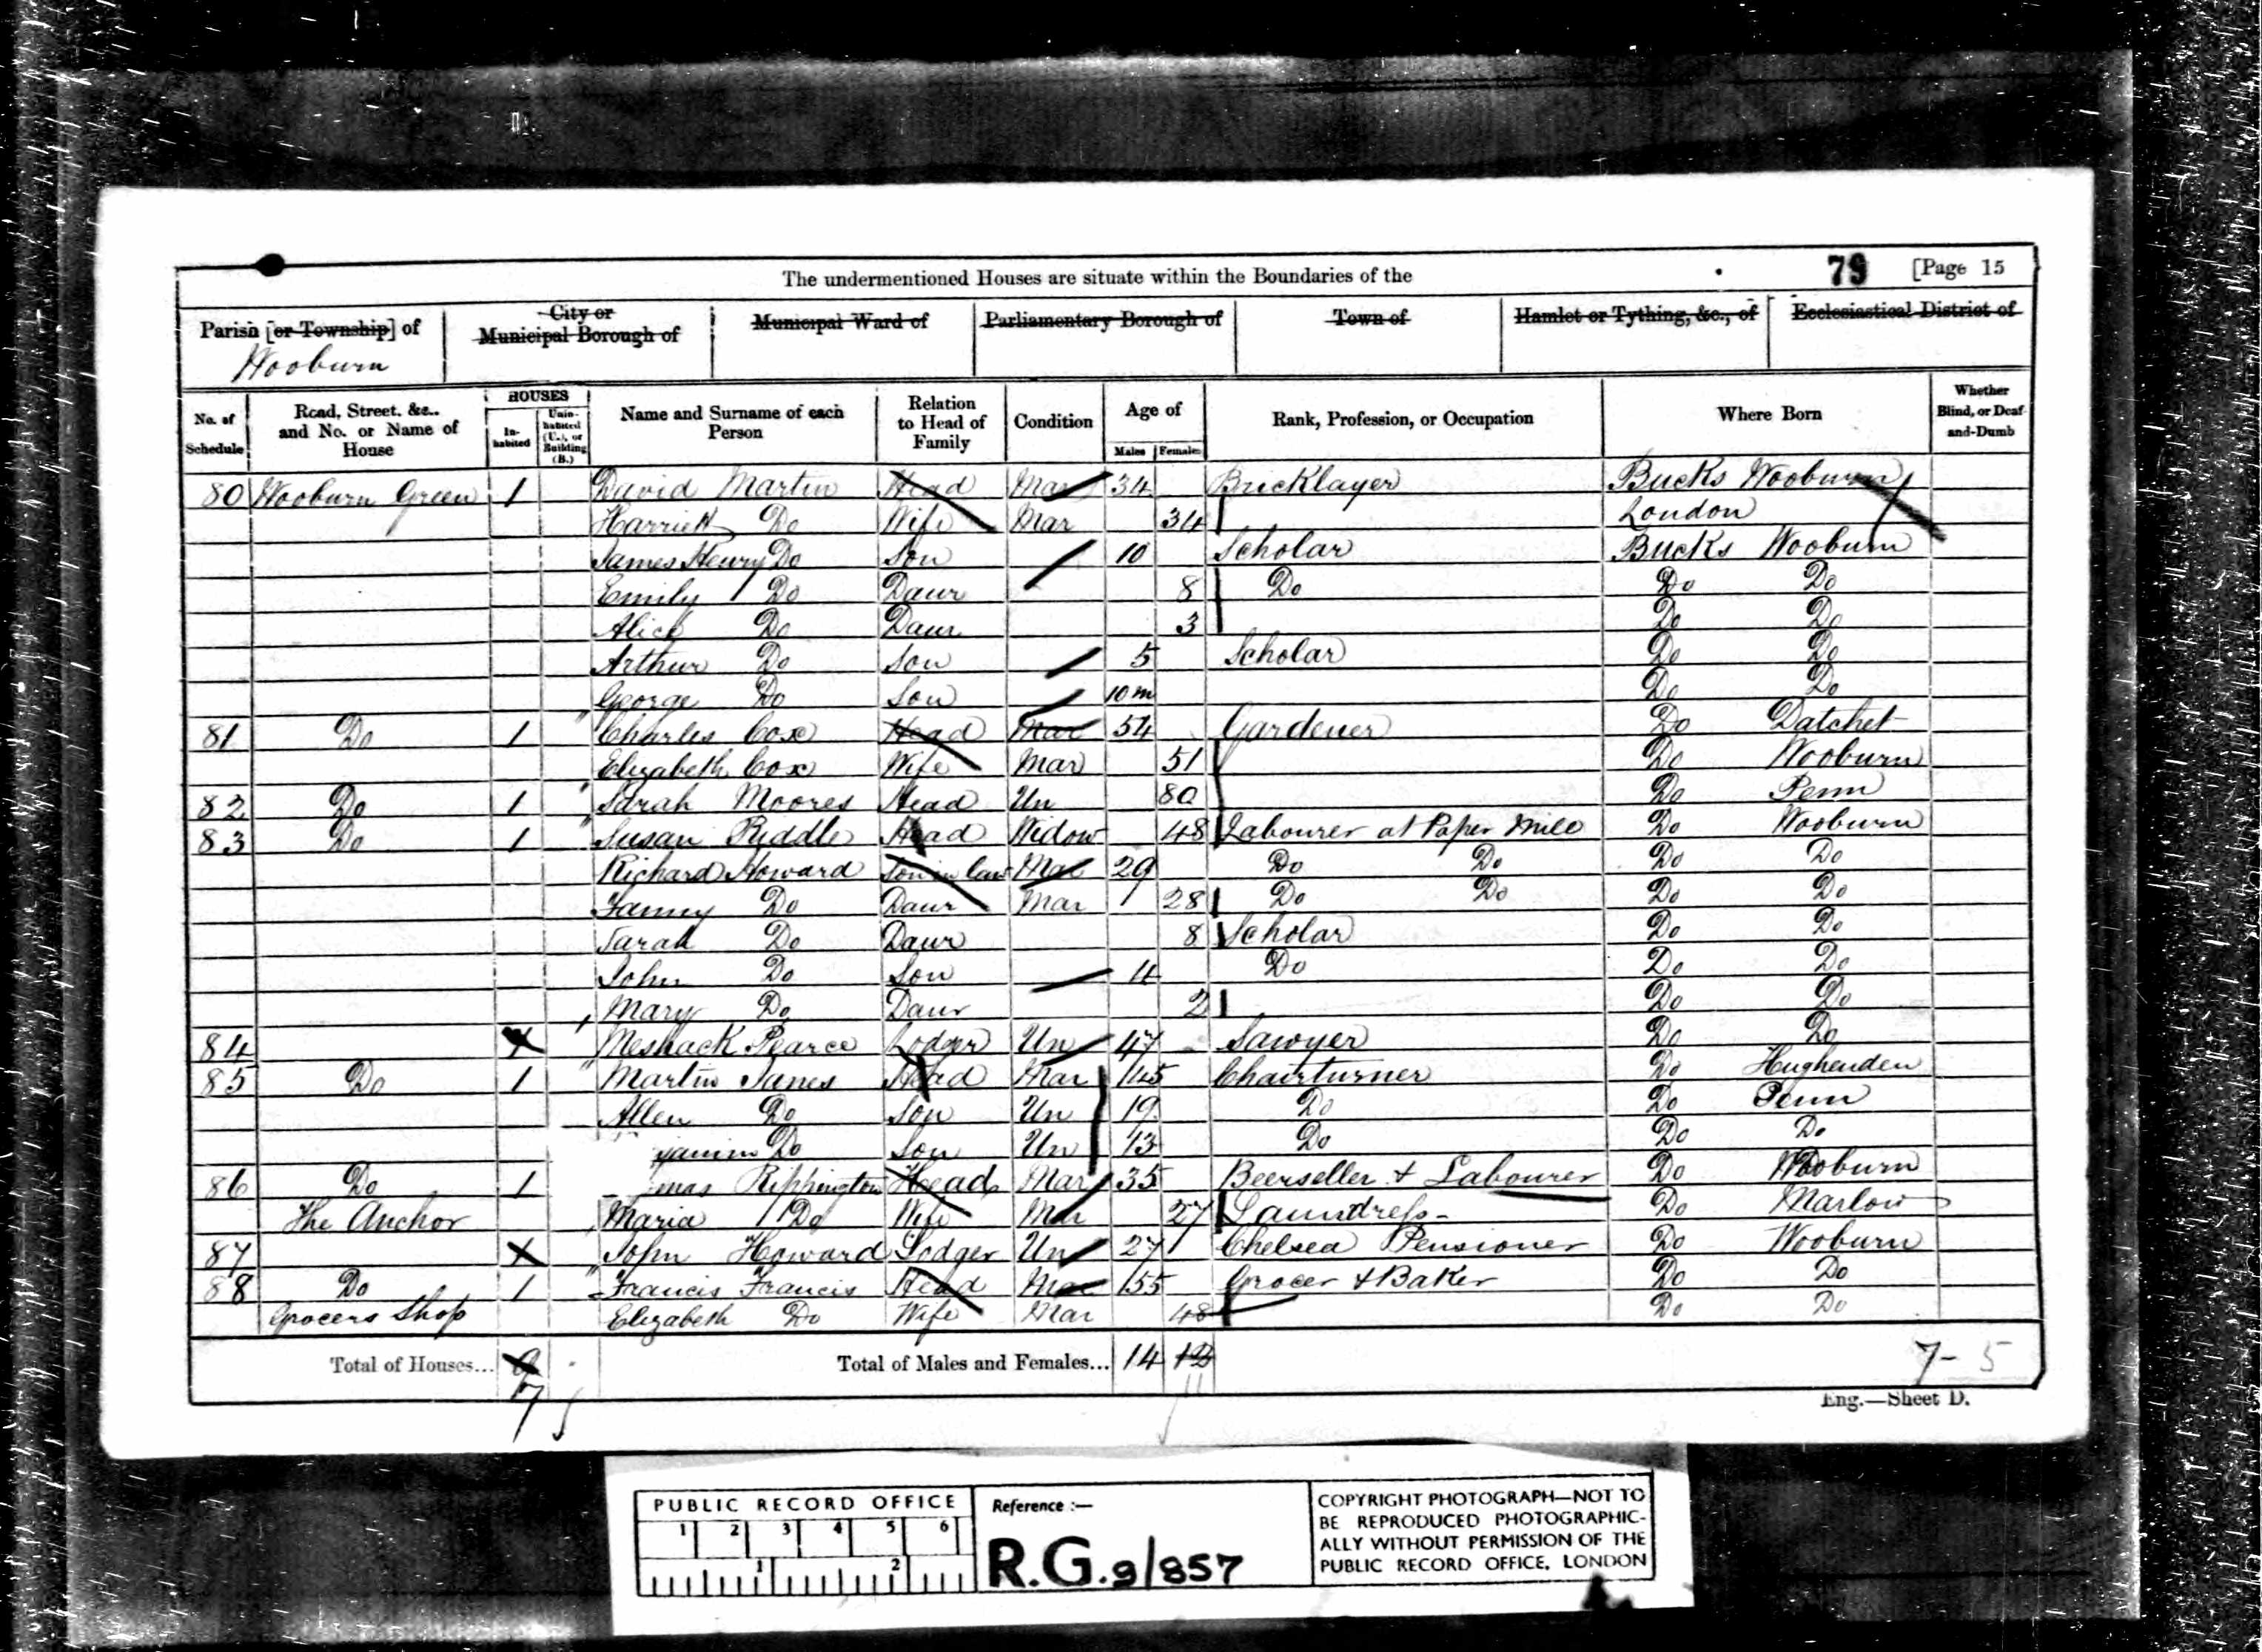 The undermentioned Houses are situate within the Boundaries of the
79 [Page 15
Parish [or Township] of
Wooburn
City or Municipal Borough of
Municipal Ward of
Parliamentary Borough of
Town of
Hamlet or Tything, &c., of
Ecclesiastical District of
No. of Schedule
Road, Street, &c., and No. or Name of House
HOUSES
In-habited
Unin-habited (U.), or Building (B.)
Name and Surname of each Person
Relation to Head of Family
Condition
Age of
Males
Females
Rank, Profession, or Occupation
Where Born
Whether Blind, or Deaf-and-Dumb
80 Wooburn Green 1 David Martin Head Mar 34 Bricklayer Bucks Wooburn
Harriett Do Wife Mar 34 London
James Henry Do Son 10 Scholar Bucks Wooburn
Emily Do Daur 8 Do Do Do
Alice Do Daur 3 Do Do
Arthur Do Son 5 Scholar Do Do
George Do Son 10 m Do Do
81 Do 1 Charles Cox Head Mar 54 Gardener Do Datchet
Elizabeth Cox Wife Mar 51 Do Wooburn
82 Do 1 Sarah Moores Head Un 80 Do Penn
83 Do 1 Susan Riddle Head Widow 48 Labourer at Paper Mill Do Wooburn
Richard Howard Son in law Mar 29 Do Do Do Do
Fanny Do Daur Mar 28 Do Do Do Do
Sarah Do Daur 8 Scholar Do Do
John Do Son 4 Do Do Do
Mary Do Daur 2 Do Do
84 Meshack Pearce Lodger Un 47 Sawyer Do Do
85 Do 1 Martin Janes Head Mar 45 Chairturner Do Hughenden
Allen Do Son Un 19 Do Do Penn
jamin Do Son Un 13 Do Do Do
86 Do 1 mas Rippington Head Mar 35 Beerseller & Labourer Do Wooburn
The Anchor Maria Do Wife Mar 27 Laundress Do Marlow
87 John Howard Lodger Un 27 Chelsea Pensioner Do Wooburn
88 Do 1 Francis Francis Head Mar 55 Grocer & Baker Do Do
Grocers Shop Elizabeth Do Wife Mar 48 Do Do
Total of Houses... 7
Total of Males and Females... 14 12
11
7 - 5
Eng.—Sheet D.
PUBLIC RECORD OFFICE
1 2 3 4 5 6
1 2
Reference :—
R.G. 9/857
COPYRIGHT PHOTOGRAPH—NOT TO
BE REPRODUCED PHOTOGRAPHIC-
ALLY WITHOUT PERMISSION OF THE
PUBLIC RECORD OFFICE, LONDON